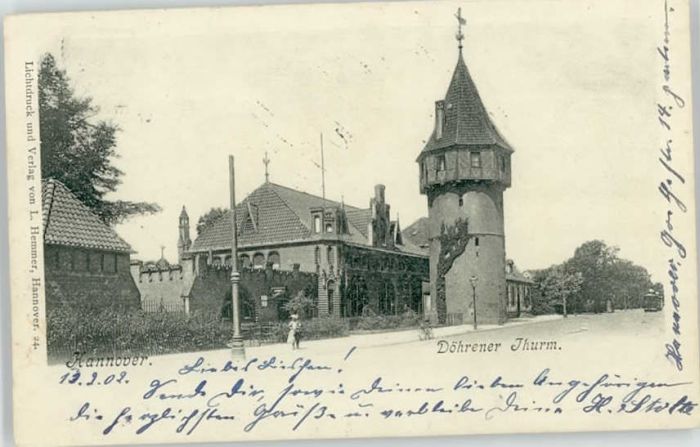 Lichtdruck und Verlag von L. Hemmer, Hannover. 24.
Hannover.
Döhrener Thurm.
13.2.02. Liebes Lieschen!
Sende Dir, sowie Deinen lieben Angehörigen
die herzlichsten Grüße u. verbleibe Deine H. Stolte
Hannover 14.